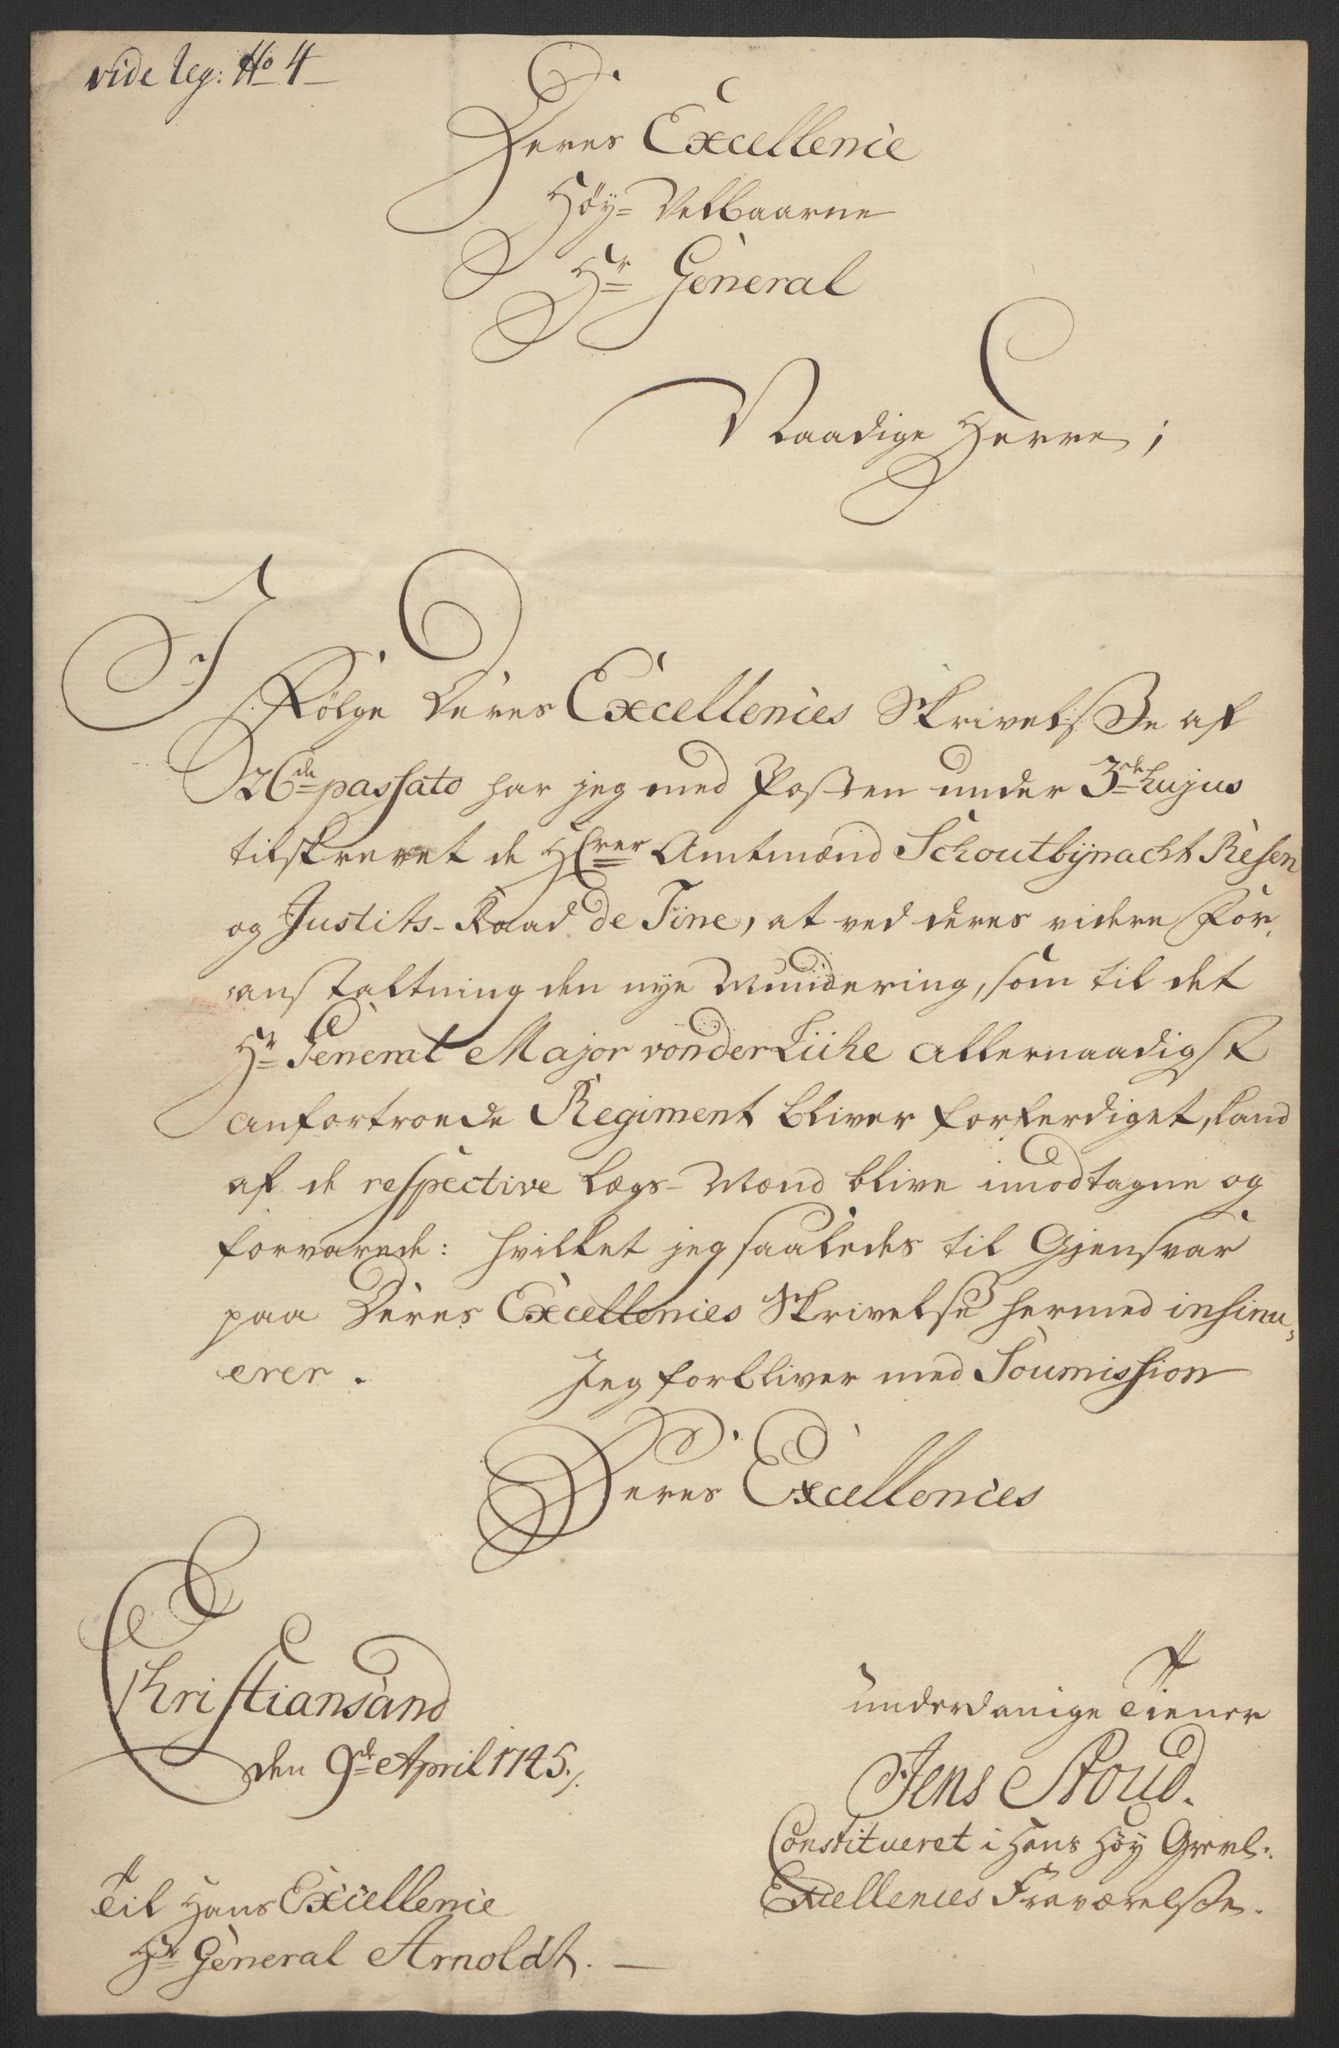 vide leg: No 4
Deres Excellence
Høy- Velbaarne
Hr General
Naadige Herre;
I
Følge Deres Excellences Skrivelsse af
26de passato har jeg med Posten under 3de hujus
tilskrevet de HErrer Amtmænd Schoutbynacht Resen
og Justits-Raad de Tine, at ved deres videre For-
anstaltning den nye Mundering, som til det
Hr General Major von der Lühe allernaadigst
anfortroede Regiment bliver forferdiget, kand
af de respective Lægs-Mænd blive imodtagne og
forvarede: hvilket jeg saaledes til Gjensvar
paa Deres Excellences Skrivelse hermed insinu-
erer.
Jeg forbliver med Soumission
Deres Excellences
Christiansand
den 9de April 1745.
underdanige Tiener
Jens Stoud.
Constitueret i Hans Høy Grevl:
Excellences Fraværelse.
Til Hans Excellence
Hr General Arnoldt.